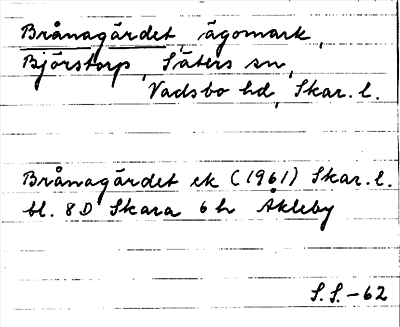 Brånagärdet, ägomark,
Björstorp, Säters sn,
Vadsbo hd, Skar. l.
Brånagärdet ek (1961) Skar. l.
bl. 8D Skara 6h Åkleby
S.S.-62